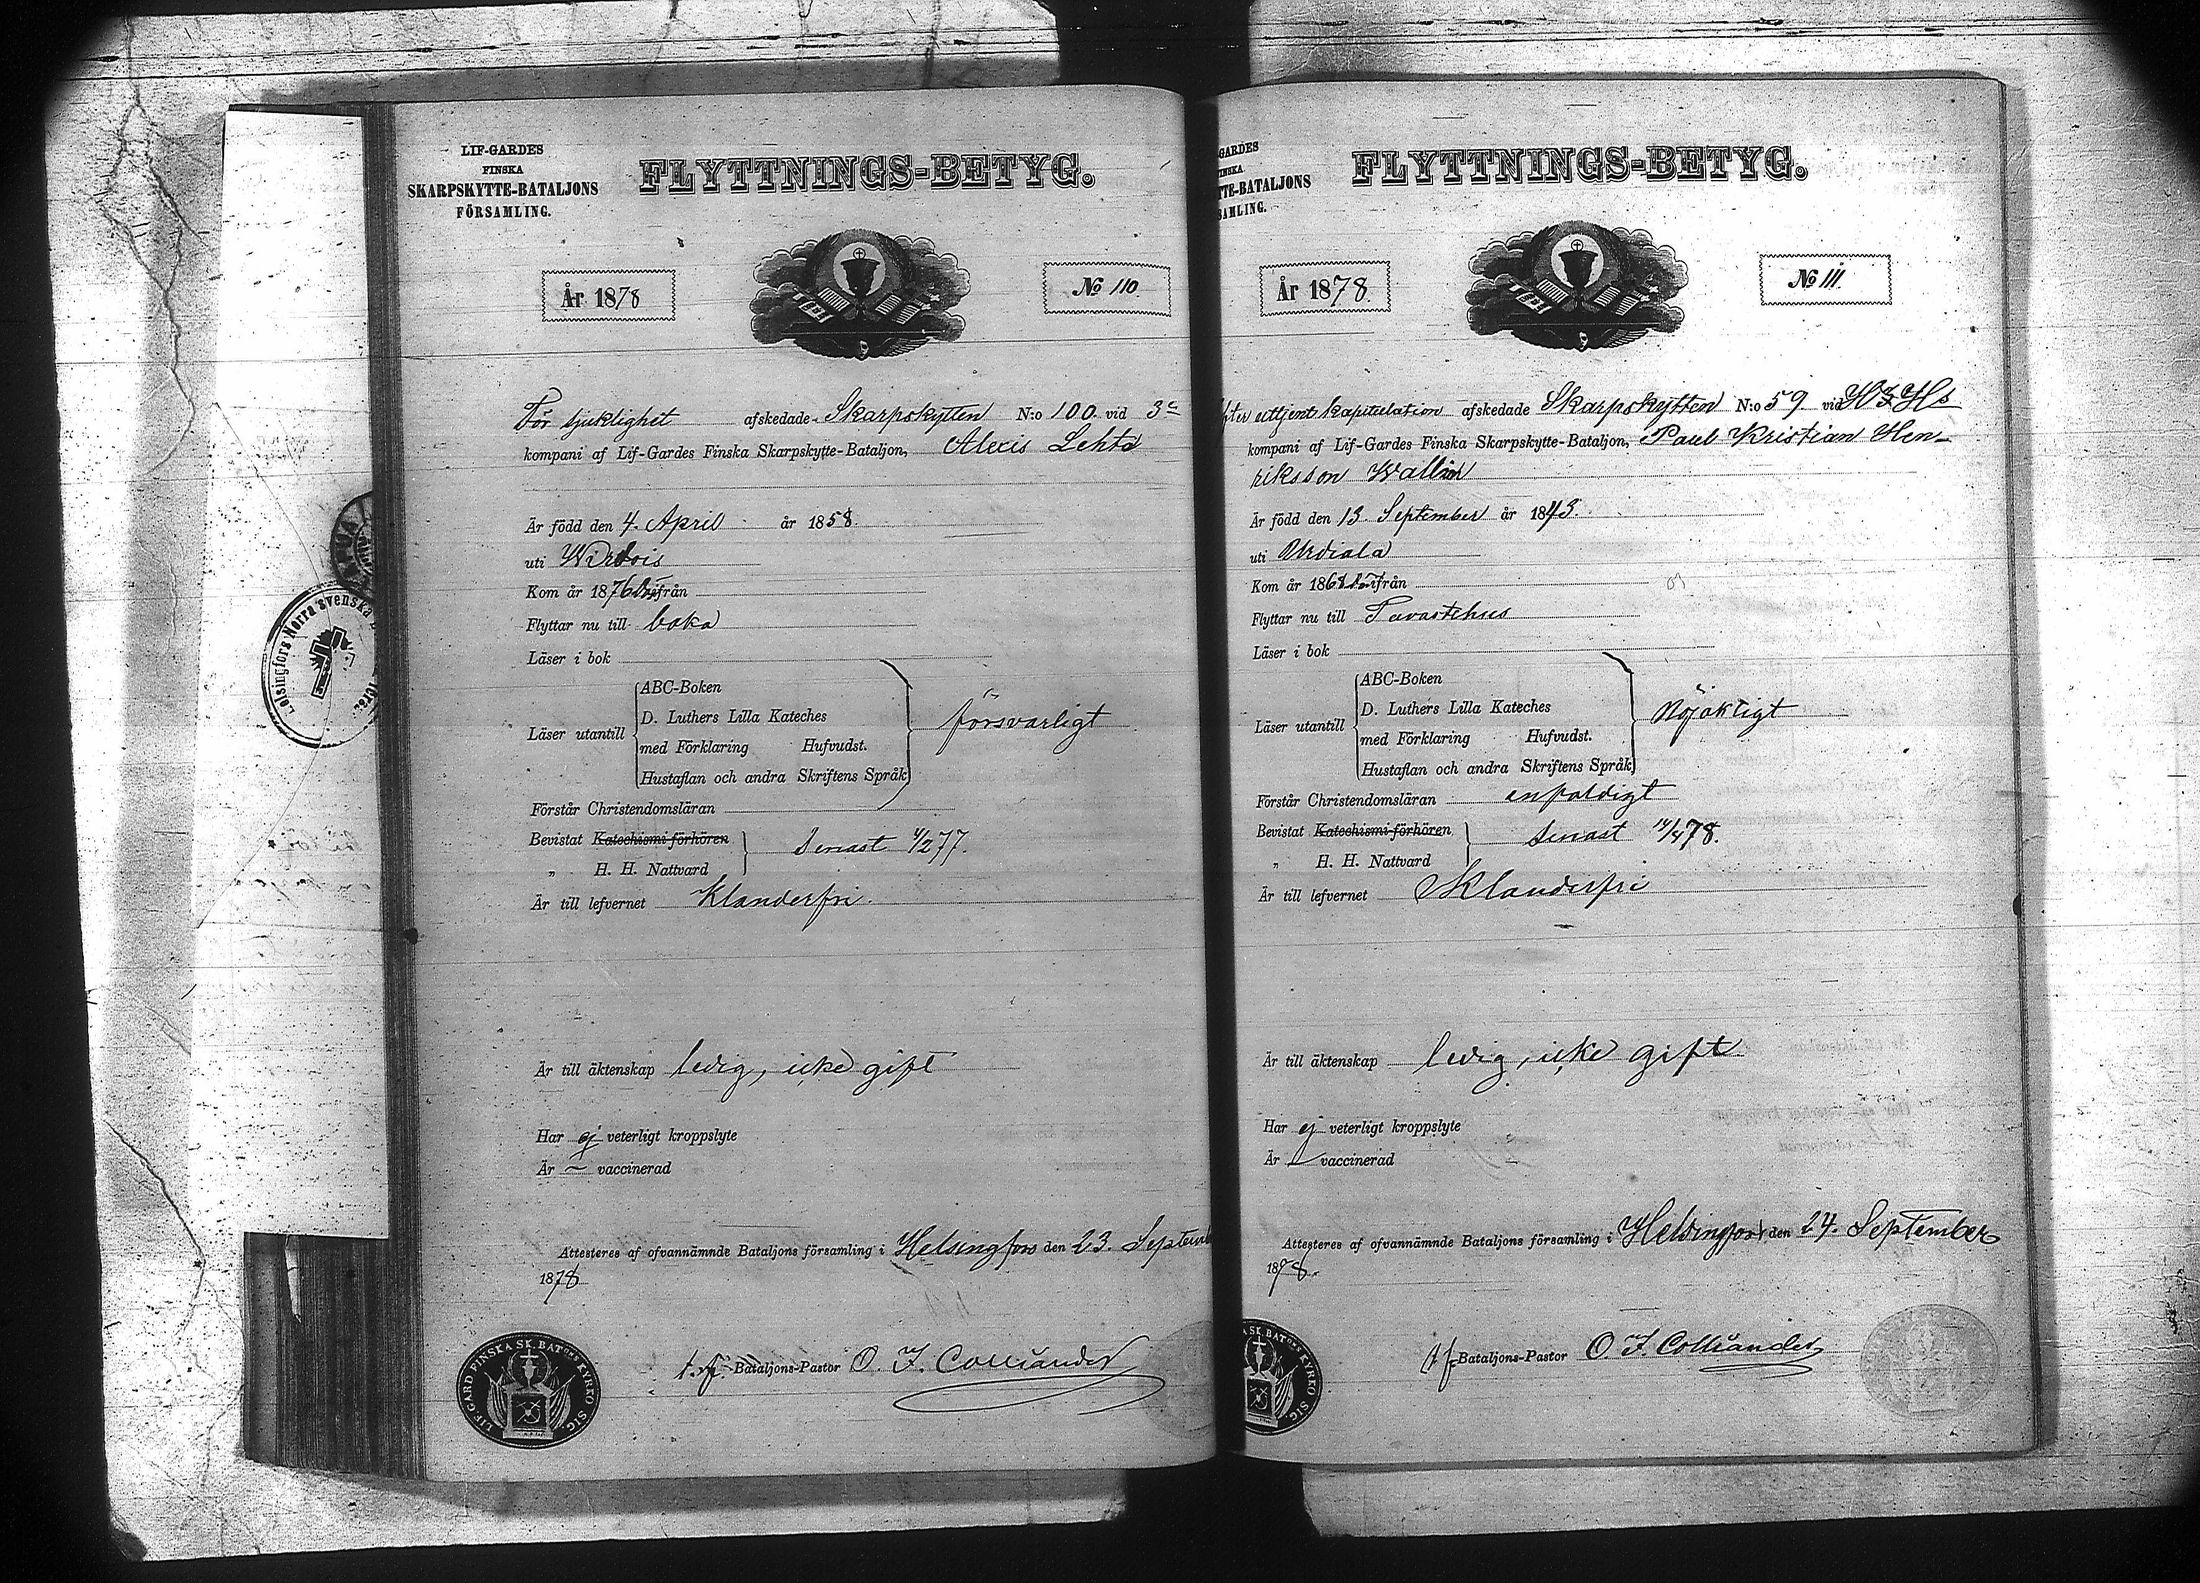 LIF-GARDES
FINSKA
SKARPSKYTTE-BATALJONS
FÖRSAMLING.
FLYTTNINGS-BETYG.
År 1878
No 110.
För sjuklighet afskedade Skarpskytten N:o 100 vid 3e
kompani af Lif-Gardes Finska Skarpskytte-Bataljon, Alexis Lehto
Är född den 4. April år 1858.
uti Wirdois
Kom år 1876 från
Flyttar nu till
Läser i bok
Läser utantill
ABC-Boken
D. Luthers Lilla Kateches
med Förklaring Hufvudst.
Hustaflan och andra Skriftens Språk
försvarligt
Förstår Christendomsläran
Bevistat Katechismi-förhören
„ H. H. Nattvard
senast 4/2 77.
Är till lefvernet Klanderfri.
Är till äktenskap ledig, icke gift
Har ej veterligt kroppslyte
Är vaccinerad
Attesteres af ofvannämnde Bataljons församling i Helsingfors den 23. Septemb
1878
t. f. Bataljons-Pastor O. F. Colliander
LIF-GARD FINSKA SK. BATons KYRKO SIG.
Helsingfors Norra svenska
GARDES
INSKA
TTE-BATALJONS
SAMLING.
FLYTTNINGS-BETYG.
År 1878.
No 111.
fter uttjent kapitulation afskedade Skarpskytten N:o 59 vid
kompani af Lif-Gardes Finska Skarpskytte-Bataljon, Paul Kristian Hen-
riksson Wallin
Är född den 13. September år 1843.
uti Urdiala
Kom år 1868 från
Flyttar nu till Tavastehus
Läser i bok
Läser utantill
ABC-Boken
D. Luthers Lilla Kateches
med Förklaring Hufvudst.
Hustaflan och andra Skriftens Språk
Nöjaktigt
Förstår Christendomsläran enfaldigt
Bevistat Katechismi-förhören
„ H. H. Nattvard
senast 14/4 78.
Är till lefvernet Klanderfri
Är till äktenskap ledig, icke gift
Har ej veterligt kroppslyte
Är vaccinerad
Attesteres af ofvannämnde Bataljons församling i Helsingfors den 24. September
1878.
t f Bataljons-Pastor O. F. Colliander
SK. BATons KYRKO SIG.